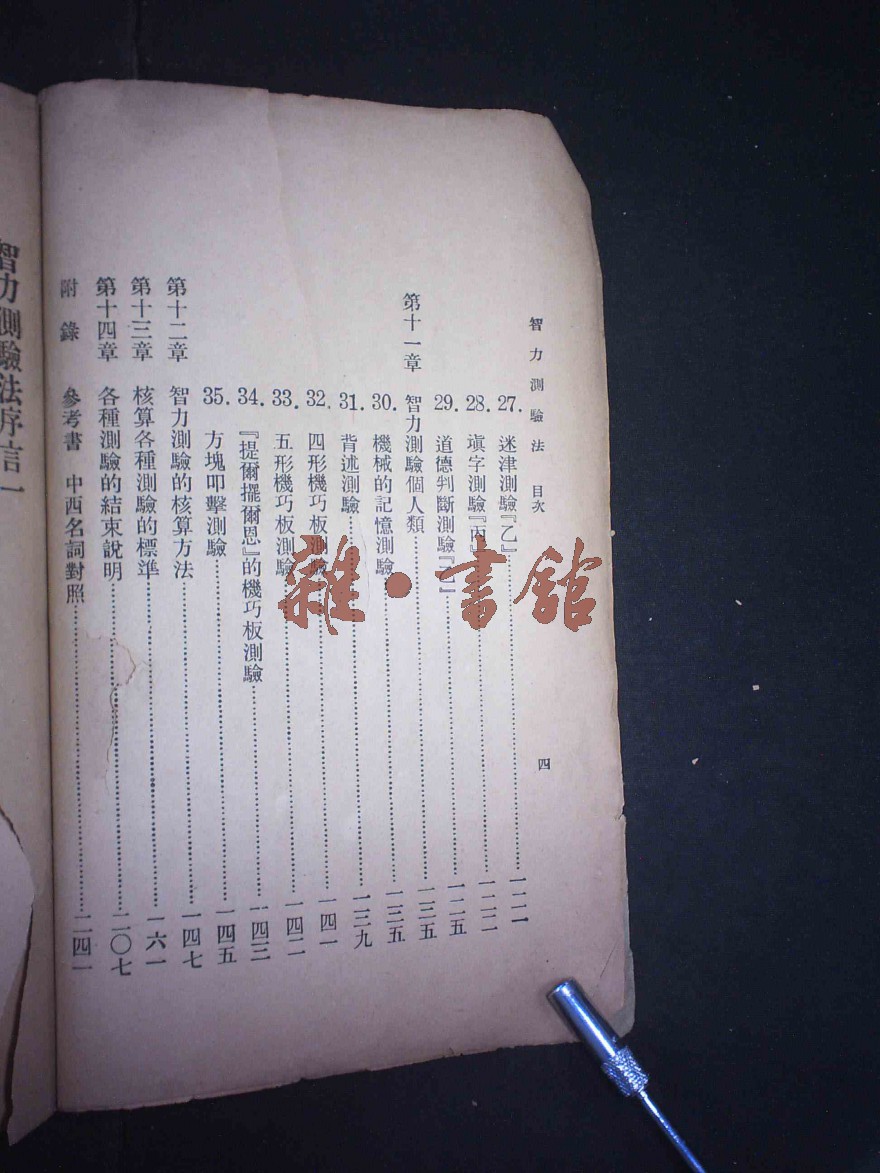 智力測驗法 目次 四
27. 迷津測驗『乙』 一一一
28. 塡字測驗『丙』 一二二
29. 道德判斷測驗『乙』 一二五
第十一章 智力測驗個人類 一三五
30. 機械的記憶測驗 一三五
31. 背述測驗 一三九
32. 四形機巧板測驗 一四一
33. 五形機巧板測驗 一四二
34. 『提爾擺爾恩』的機巧板測驗 一四三
35. 方塊叩擊測驗 一四五
第十二章 智力測驗的核算方法 一四七
第十三章 核算各種測驗的標準 一六一
第十四章 各種測驗的結束說明 二〇七
附錄 參考書 中西名詞對照 二四一
智力測驗法序言一
雜·書館